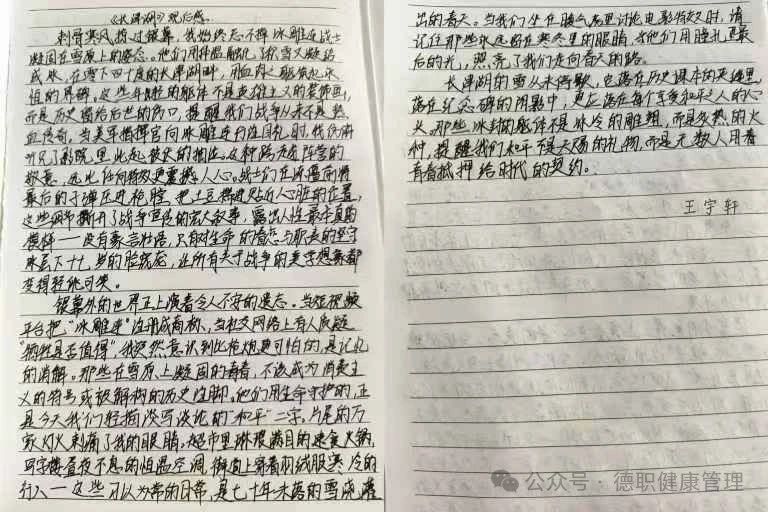 《长津湖》观后感。
刺骨寒风掠过银幕,我始终忘不掉冰雕连战士
凝固在雪原上的姿态。他们用体温融化了积雪又凝结
成冰,在零下四十度的长津湖畔,用血肉之躯筑起永
恒的界碑。这些年轻的躯体不是英雄主义的装饰画,
而是历史留给后世的伤口,提醒我们战争从来不是热
血传奇。当美军指挥官向冰雕连行注目礼时,我仿佛
听见了影院里此起彼伏的抽泣。这种跨越阵营的
敬意,远比任何特效更震撼人心。战士们在冻僵前将
最后的子弹压进枪膛,把土豆揣进贴近心脏的位置,
这些细节撕开了战争宣传的宏大叙事,露出人性最本真的
模样——没有豪言壮语,只有对生命的眷恋与职责的坚守
冰层下十七岁的脸庞,让所有关于战争的美学想象都
变得轻佻可笑。
银幕外的世界正上演着令人不安的遗忘。当短视频
平台把"冰雕连"注册成商标、当社交网络上有人质疑
"牺牲是否值得"我突然意识到比枪炮更可怕的,是记忆
的消解。那些在雪原上凝固的青春,不该成为消费主
义的符号或被解构的历史注脚。他们用生命守护的,正
是今天我们轻描淡写谈论的"和平"二字。片尾的万
家灯火刺痛了我的眼睛,超市里琳琅满目的速食火锅,
写字楼昼夜不息的恒温空调,街道上穿着羽绒服寒冷的
行人——这些习以为常的日常,是七十年未落的雪浇灌
出的春天。当我们坐在暖气房里讨论电影特效时,请
记住那些永远留在寒冬里的眼睛,是他们用瞳孔里最
后的光,照亮了我们走向春天的路。
长津湖的雪从未停歇,它落在历史课本的夹缝里
落在纪念碑的阴影中,更应落在每个享受和平之人的心
头。那些冰封的躯体不是冰冷的雕塑,而是灼热的火
种,提醒我们和平不是天赐的礼物,而是无数人用青
春抵押给时代的契约。
王宇轩
公众号·德职健康管理